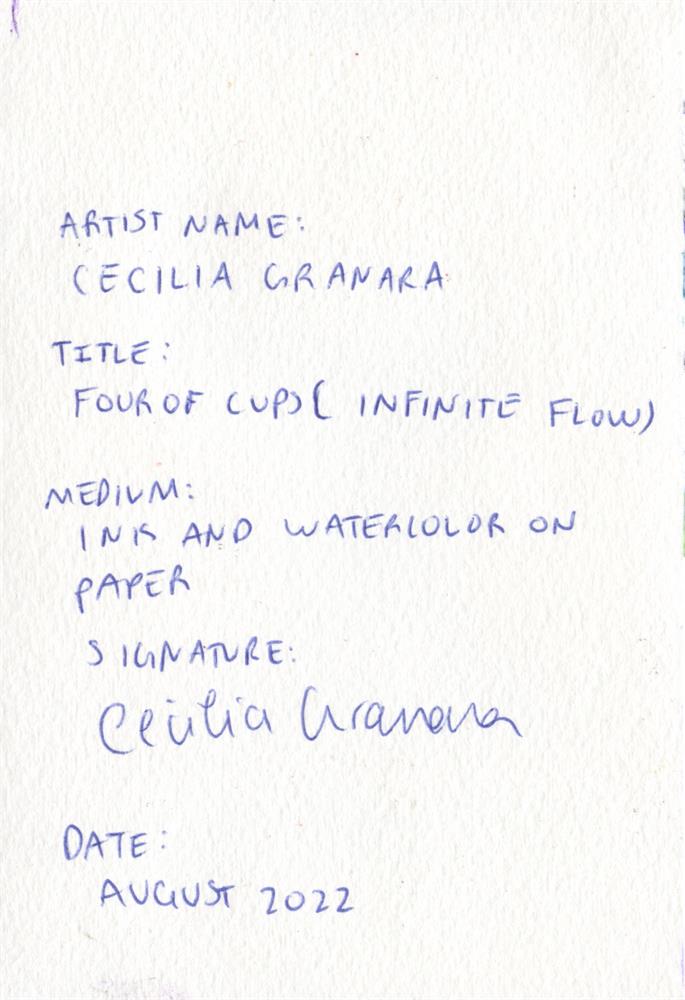 ARTIST NAME:
CECILIA GRANARA
TITLE:
FOUR OF CUPS ( INFINITE FLOW)
MEDIUM:
INK AND WATERCOLOR ON
PAPER
SIGNATURE:
Cecilia Granara
DATE:
AUGUST 2022